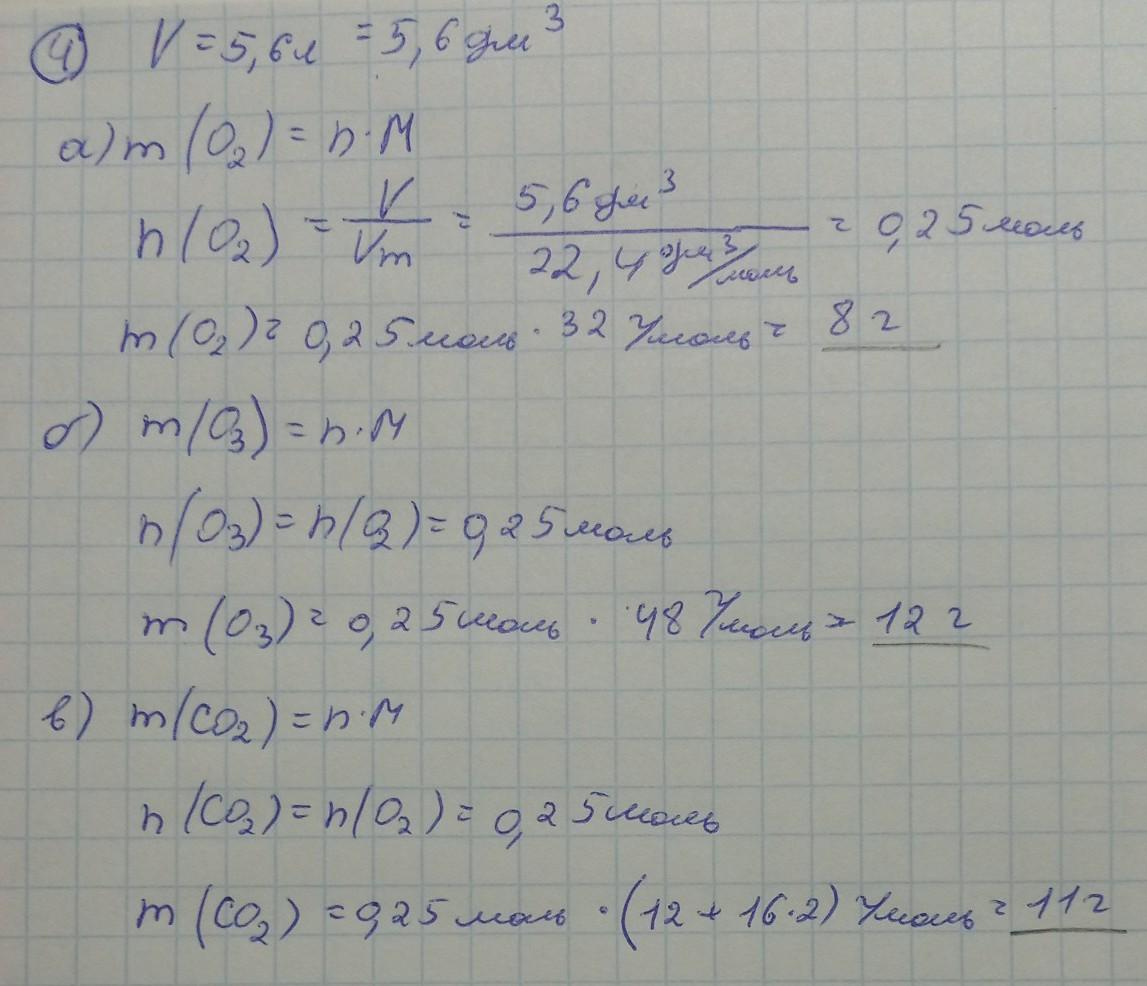 ④ V = 5,6 л = 5,6 дм³
а) m(O₂) = n·M
n(O₂) = V/Vm = 5,6 дм³ / 22,4 дм³/моль = 0,25 моль
m(O₂) = 0,25 моль · 32 г/моль = 8 г
б) m(O₃) = n·M
n(O₃) = n(O₂) = 0,25 моль
m(O₃) = 0,25 моль · 48 г/моль = 12 г
в) m(CO₂) = n·M
n(CO₂) = n(O₂) = 0,25 моль
m(CO₂) = 0,25 моль · (12 + 16·2) г/моль = 11 г